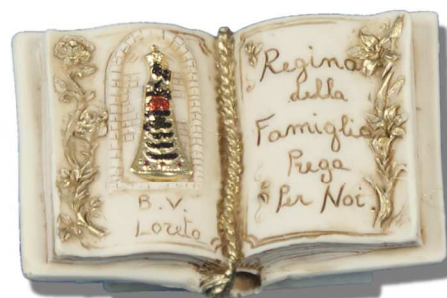 B. V.
Loreto
Regina
della
Famiglia
Prega
Per Noi.